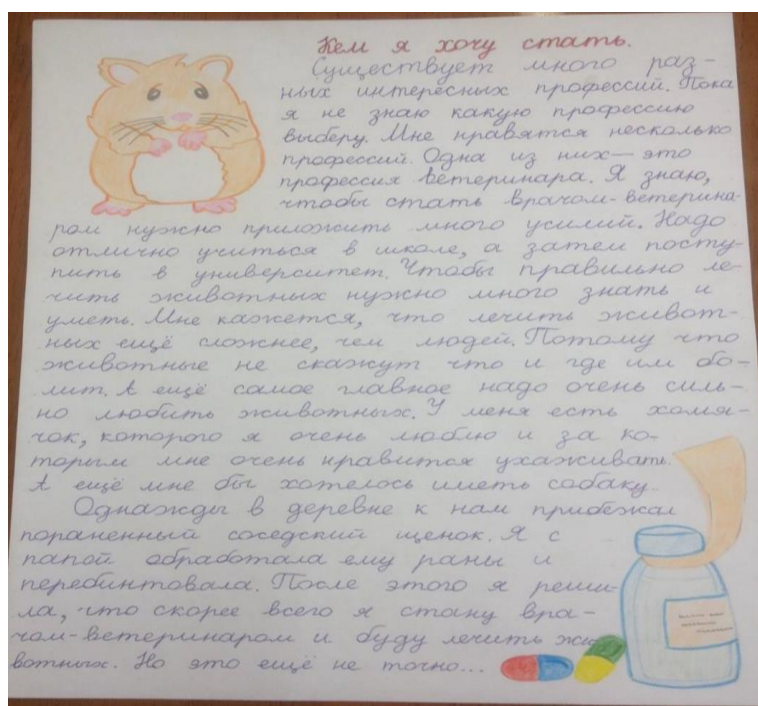 Кем я хочу стать.
Существует много раз-
ных интересных профессий. Пока
я не знаю какую профессию
выберу. Мне нравятся несколько
профессий. Одна из них — это
профессия ветеринара. Я знаю,
чтобы стать врачом-ветерина-
ром нужно приложить много усилий. Надо
отлично учиться в школе, а затем посту-
пить в университет. Чтобы правильно ле-
чить животных нужно много знать и
уметь. Мне кажется, что лечить живот-
ных ещё сложнее, чем людей. Потому что
животные не скажут что и где им бо-
лит. А ещё самое главное надо очень силь-
но любить животных. У меня есть хомя-
чок, которого я очень люблю и за ко-
торым мне очень нравится ухаживать.
А ещё мне бы хотелось иметь собаку.
Однажды в деревне к нам прибежал
пораненный соседский щенок. Я с
папой обработала ему раны и
перебинтовала. После этого я реши-
ла, что скорее всего я стану вра-
чом-ветеринаром и буду лечить жи-
вотных. Но это ещё не точно...